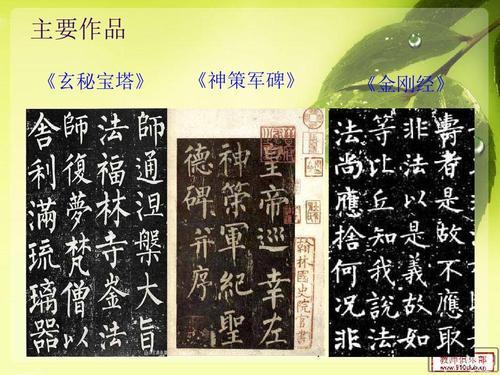 主要作品
《玄秘宝塔》
《神策军碑》
《金刚经》
師通涅槃大旨
法福林寺崟法
師復夢梵僧以
舍利滿琉璃器
皇帝巡幸左
神策軍紀聖
德碑并序
翰林國史院官書
壽者是故不應取
非法以是義故如
等比丘知我說
法尚應捨何况非
教师俱乐部